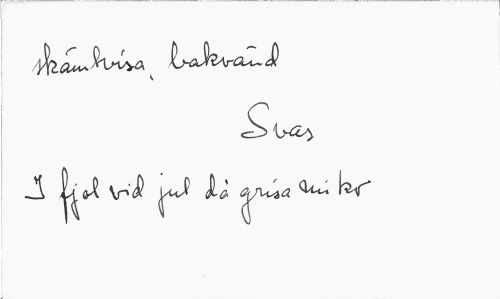 skämtvisa, bakvänd
Svas
I fjol vid jul då grisa min ko